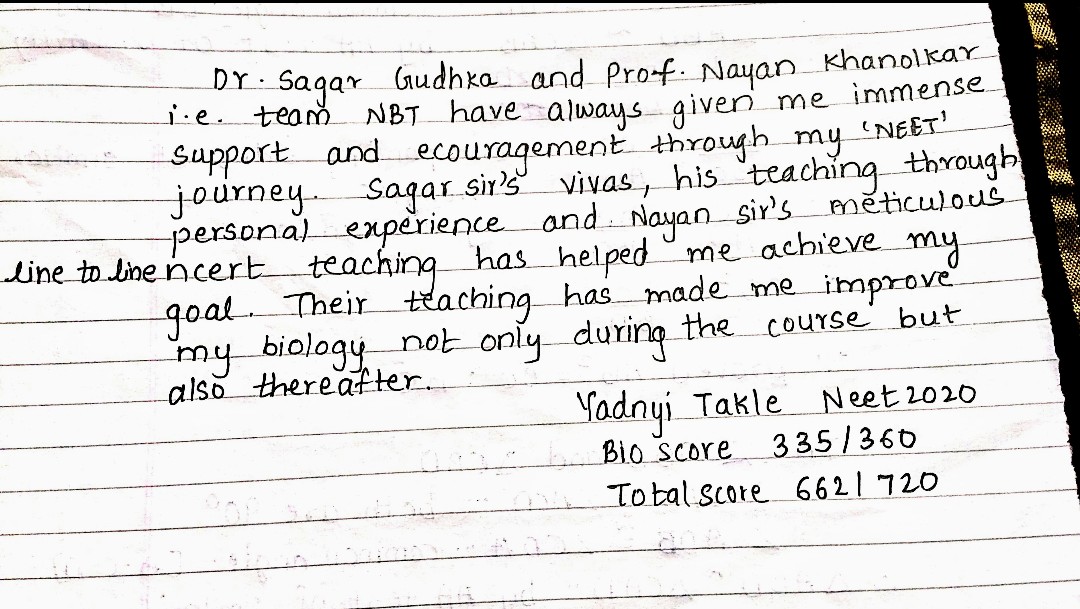 Dr. Sagar Gudhka and Prof. Nayan Khanolkar
i.e. team NBT have always given me immense
support and ecouragement through my 'NEET'
journey. Sagar sir's vivas, his teaching through
personal experience and Nayan sir's meticulous
line to line ncert teaching has helped me achieve my
goal. Their teaching has made me improve
my biology not only during the course but
also thereafter.
Yadnyi Takle Neet 2020
Bio score 335/360
Total score 662/720